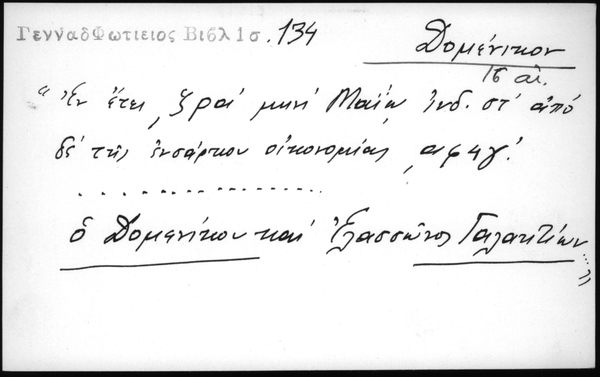 ΓενναδΦωτιειος Βιβλ 1σ. 134
Δομένικον
15 αἰ.
"Ἐν ἔτει, ζραʹ μηνί Μαΐῳ Ἰνδ. στʹ ἀπό
δέ τῆς ἐνσάρκου οἰκονομίας, αφϟγʹ.
..................
ὁ Δομενίκου καί Ἐλασσῶνος Γαλακτίων..."